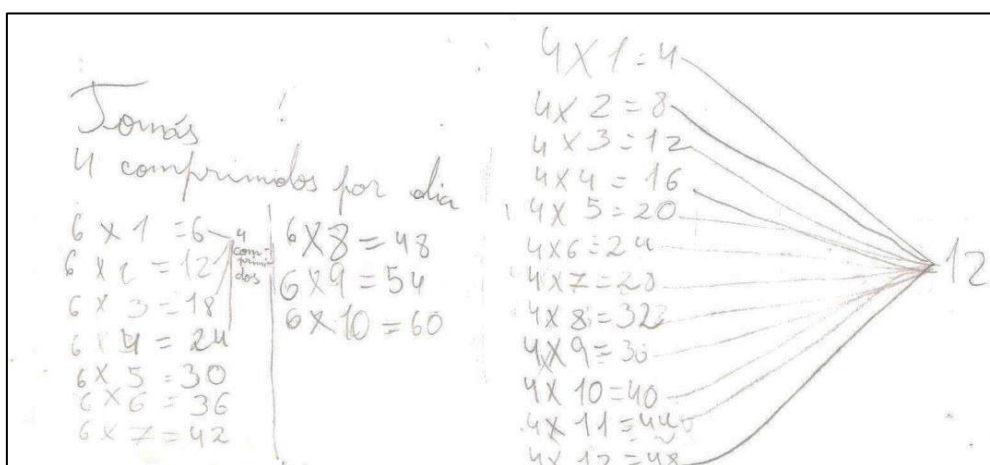 Tomás
4 comprimidos por dia
6 x 1 = 6
6 x 2 = 12
6 x 3 = 18
6 x 4 = 24
6 x 5 = 30
6 x 6 = 36
6 x 7 = 42
4
com-
primi-
dos
6 x 8 = 48
6 x 9 = 54
6 x 10 = 60
4 x 1 = 4
4 x 2 = 8
4 x 3 = 12
4 x 4 = 16
4 x 5 = 20
4 x 6 = 24
4 x 7 = 28
4 x 8 = 32
4 x 9 = 36
4 x 10 = 40
4 x 11 = 44
4 x 12 = 48
12